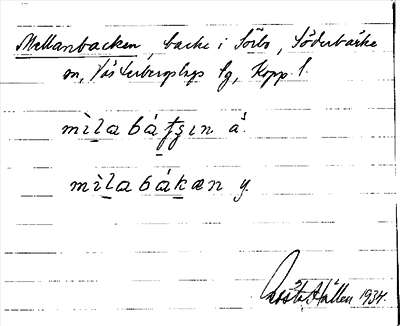 Mellanbacken, backe i Sörbo, Söderbärke
sn, Västerbergslags fg, Kopp. l.
mìla báƭgın ä.
mìla bákæn y.
Gösta Hållen 1934.